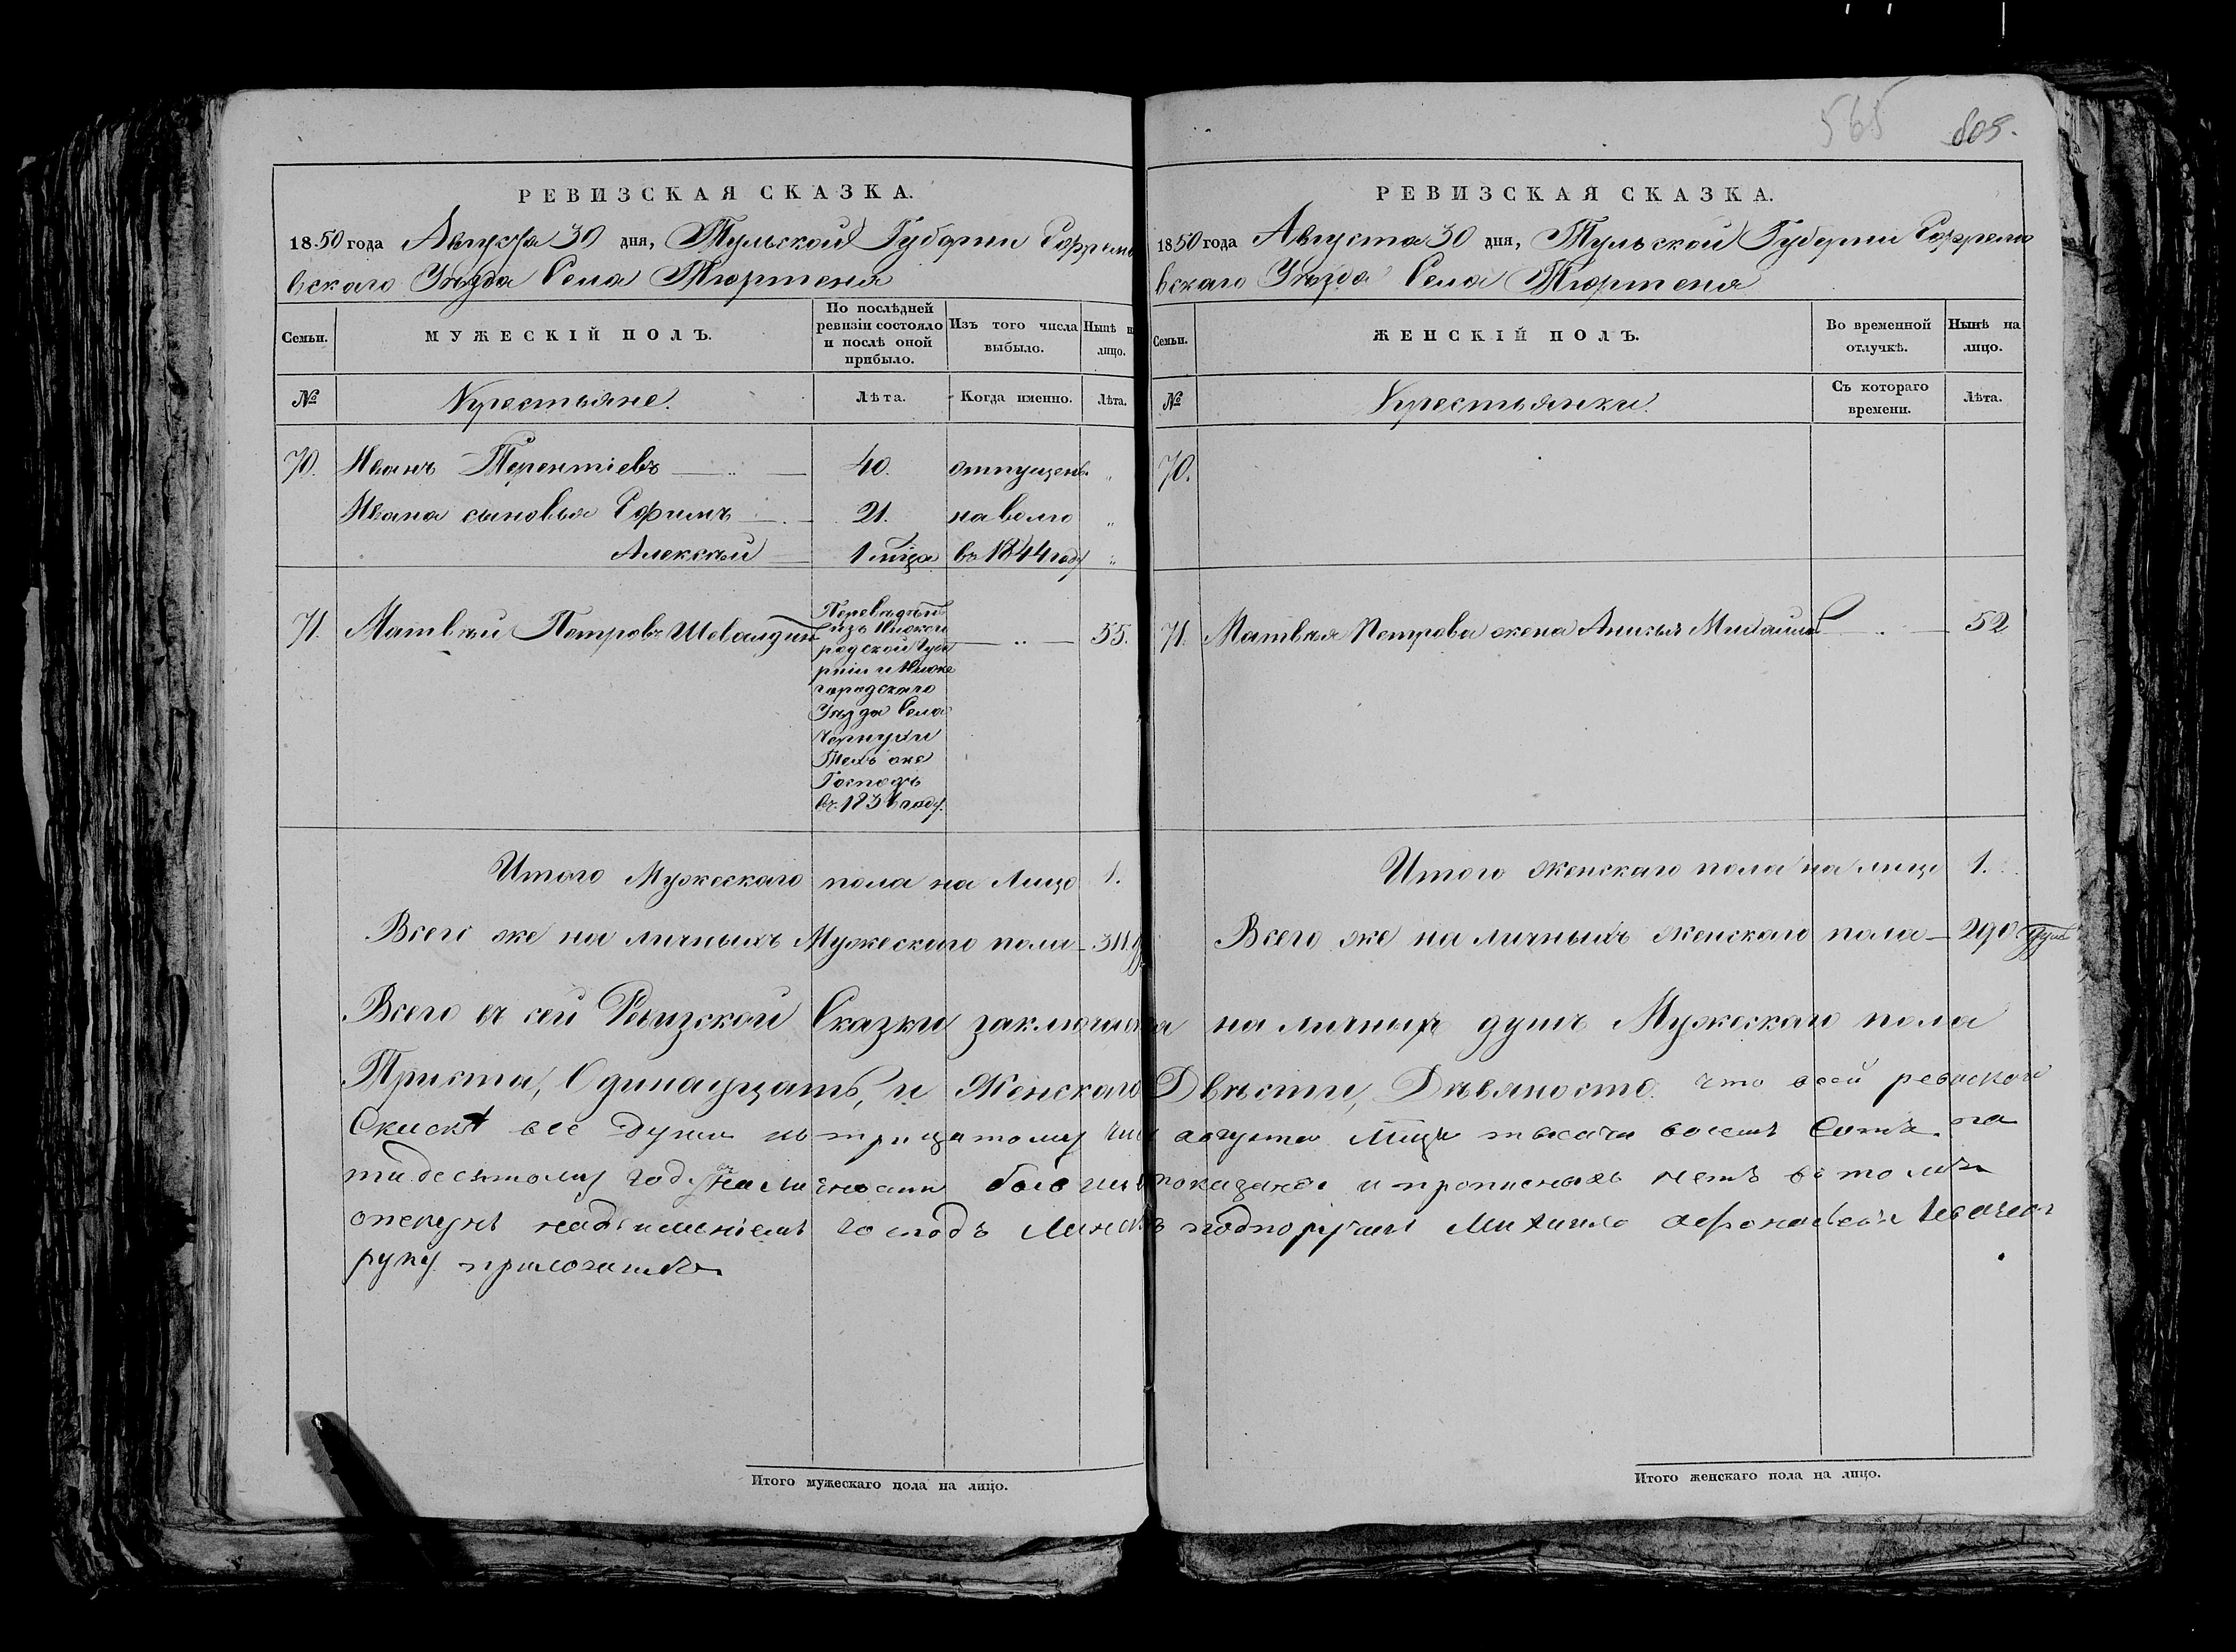 565 805.
РЕВИЗСКАЯ СКАЗКА.
1850 года Августа 30 дня, Тульской Губернии Ефремо
вского Уѣзда Села Тюртеня
Семьи. МУЖЕСКІЙ ПОЛЪ. По послѣдней ревизіи состояло и послѣ оной прибыло. Изъ того числа выбыло. Нынѣ н лицо.
№ Крестьяне. Лѣта. Когда именно. Лѣта.
70. Иванъ Терентіевъ 40. отпущены „
Ивана сыновья Ефимъ 21. на волю „
Алексѣй 1 мѣца въ 1844 году „
71. Матвѣй Петровъ Шевалдин 55.
Переведенъ
изъ Нижего
родской Губе
рніи и Ниже
городского
Уѣзда Села
Чернухи
Тѣхъ же
Господъ
въ 1836 году.
Итого Мужескаго пола на Лицо 1.
Всего же на личныхъ Мужескаго пола 311
РЕВИЗСКАЯ СКАЗКА.
1850 года Августа 30 дня, Тульской Губернии Ефремо
вского Уѣзда Села Тюртеня
Семьи. ЖЕНСКІЙ ПОЛЪ. Во временной отлучкѣ. Нынѣ на лицо.
№ Крестьянки. Съ котораго времени. Лѣта.
70.
71. Матвея Петрова жена 52
Итого женскаго пола на лицо 1.
Всего же на личныхъ женскаго пола 290 душъ
Всего въ сей Ревизской Сказки заключается на личныхъ душъ Мужескаго пола
Триста, Одинацать, и Женскаго Двѣсти, Девяносто. что в сей ревиской
все души к тритцатому числу августа мца тысеча восемъ сотъ пя
тидесятому году на личности показанѣ и прописныхъ нетъ в томъ
опекунъ надъ именіемъ господъ подпоручикъ Михаила
руку приложилъ
Итого мужескаго пола на лицо.
Итого женскаго пола на лицо.